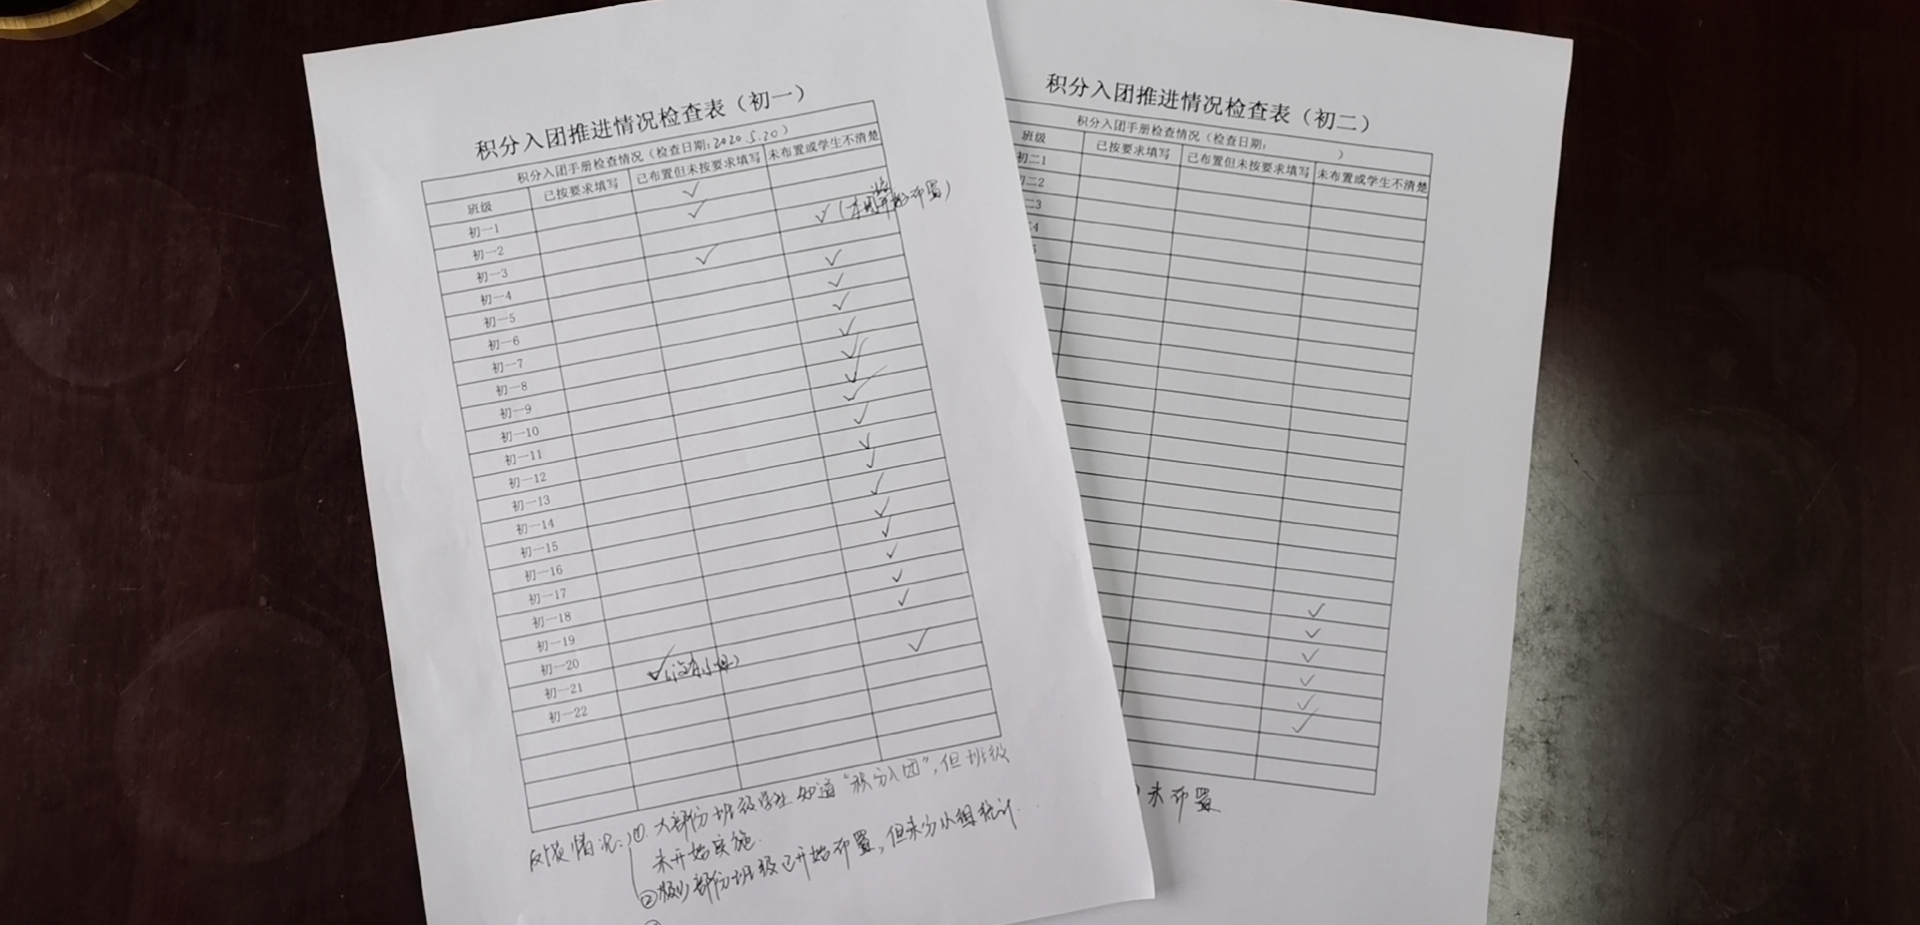 积分入团推进情况检查表（初一）
积分入团手册检查情况（检查日期:2020.5.20）
班级 已按要求填写 已布置但未按要求填写 未布置或学生不清楚
初一1 ✓
初一2 ✓
初一3 ✓(本周始布置)
初一4 ✓
初一5 ✓
初一6 ✓
初一7 ✓
初一8 ✓
初一9 ✓
初一10 ✓
初一11 ✓
初一12 ✓
初一13 ✓
初一14 ✓
初一15 ✓
初一16 ✓
初一17 ✓
初一18 ✓
初一19 ✓
初一20 ✓
初一21 ✓
初一22 ✓
反馈情况:①.大部份班级学生知道“积分入团”,但班级
未开始实施.
②极少部份班级已开始布置,但未分小组统计.
积分入团推进情况检查表（初二）
积分入团手册检查情况（检查日期: ）
班级 已按要求填写 已布置但未按要求填写 未布置或学生不清楚
初二1
二2
二3
✓
✓
✓
✓
✓
✓
未布置